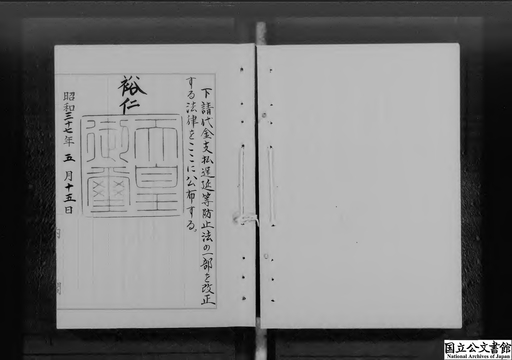 下請代金支払遅延等防止法の一部を改正
する法律をここに公布する。
裕仁
天皇
御璽
昭和三十七年 五 月 十五 日
国立公文書館
National Archives of Japan